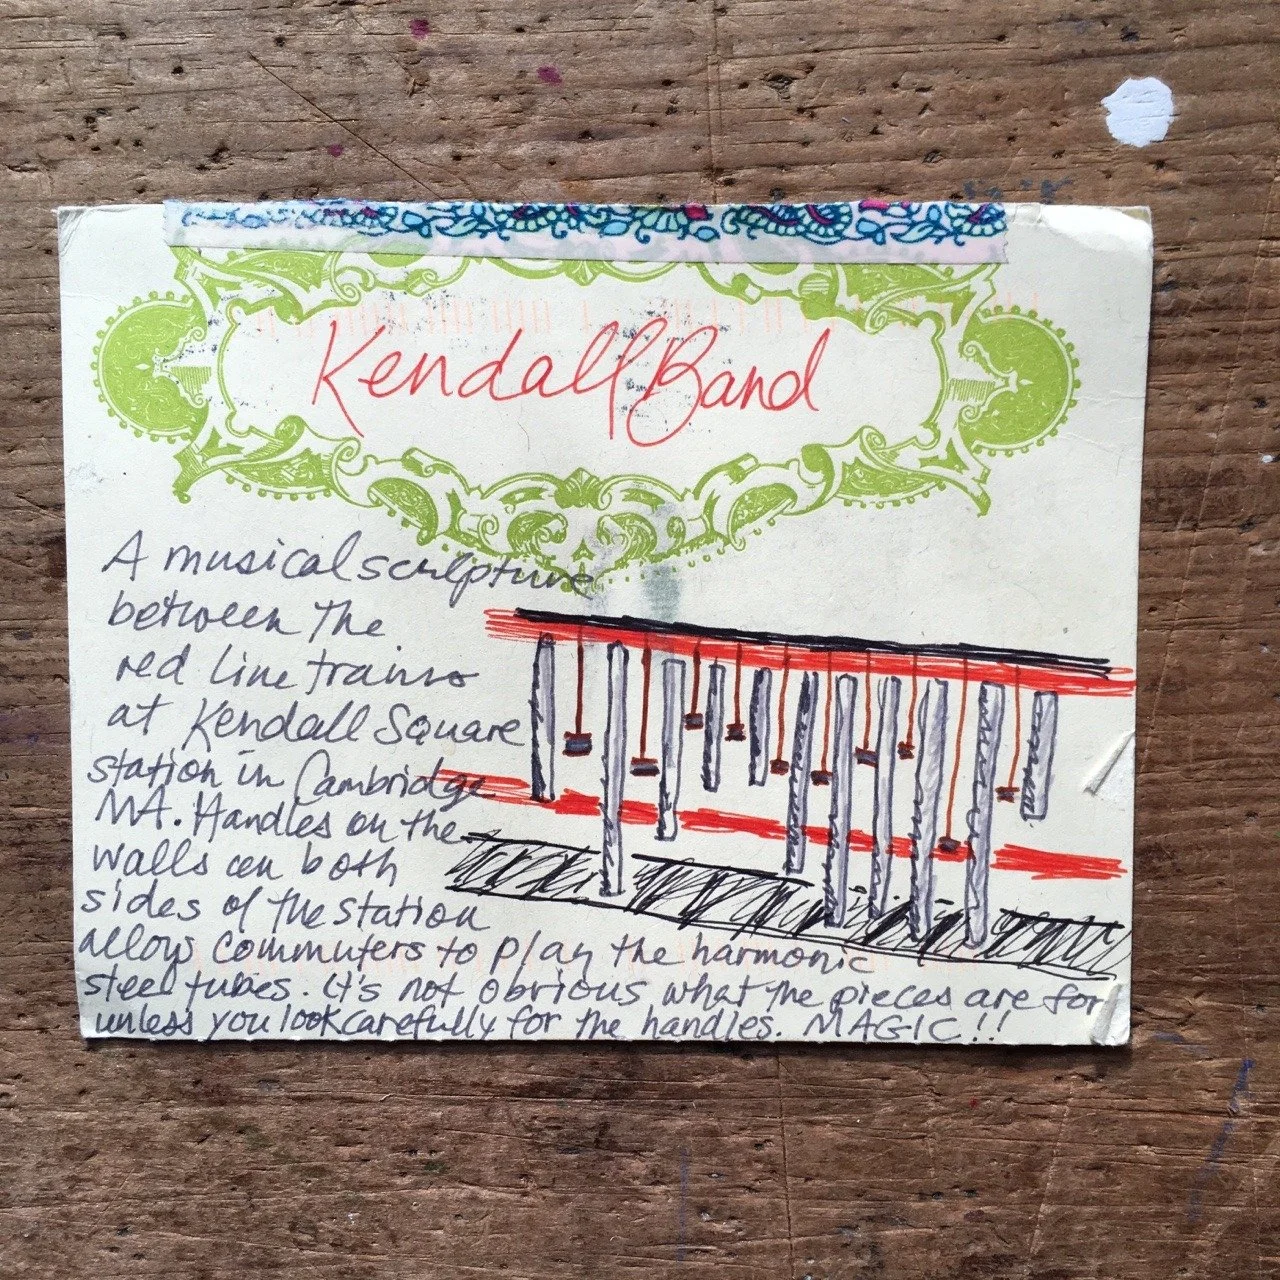 Kendall Band
A musical sculpture
between the
red line trains
at Kendall Square
station in Cambridge
MA. Handles on the
walls on both
sides of the station
allows commuters to play the harmonic
steel tubes. It's not obvious what the pieces are for
unless you look carefully for the handles. MAGIC!!